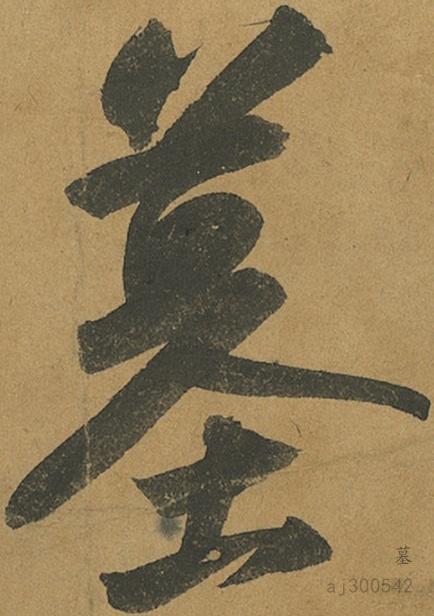 墓
墓
aj300542